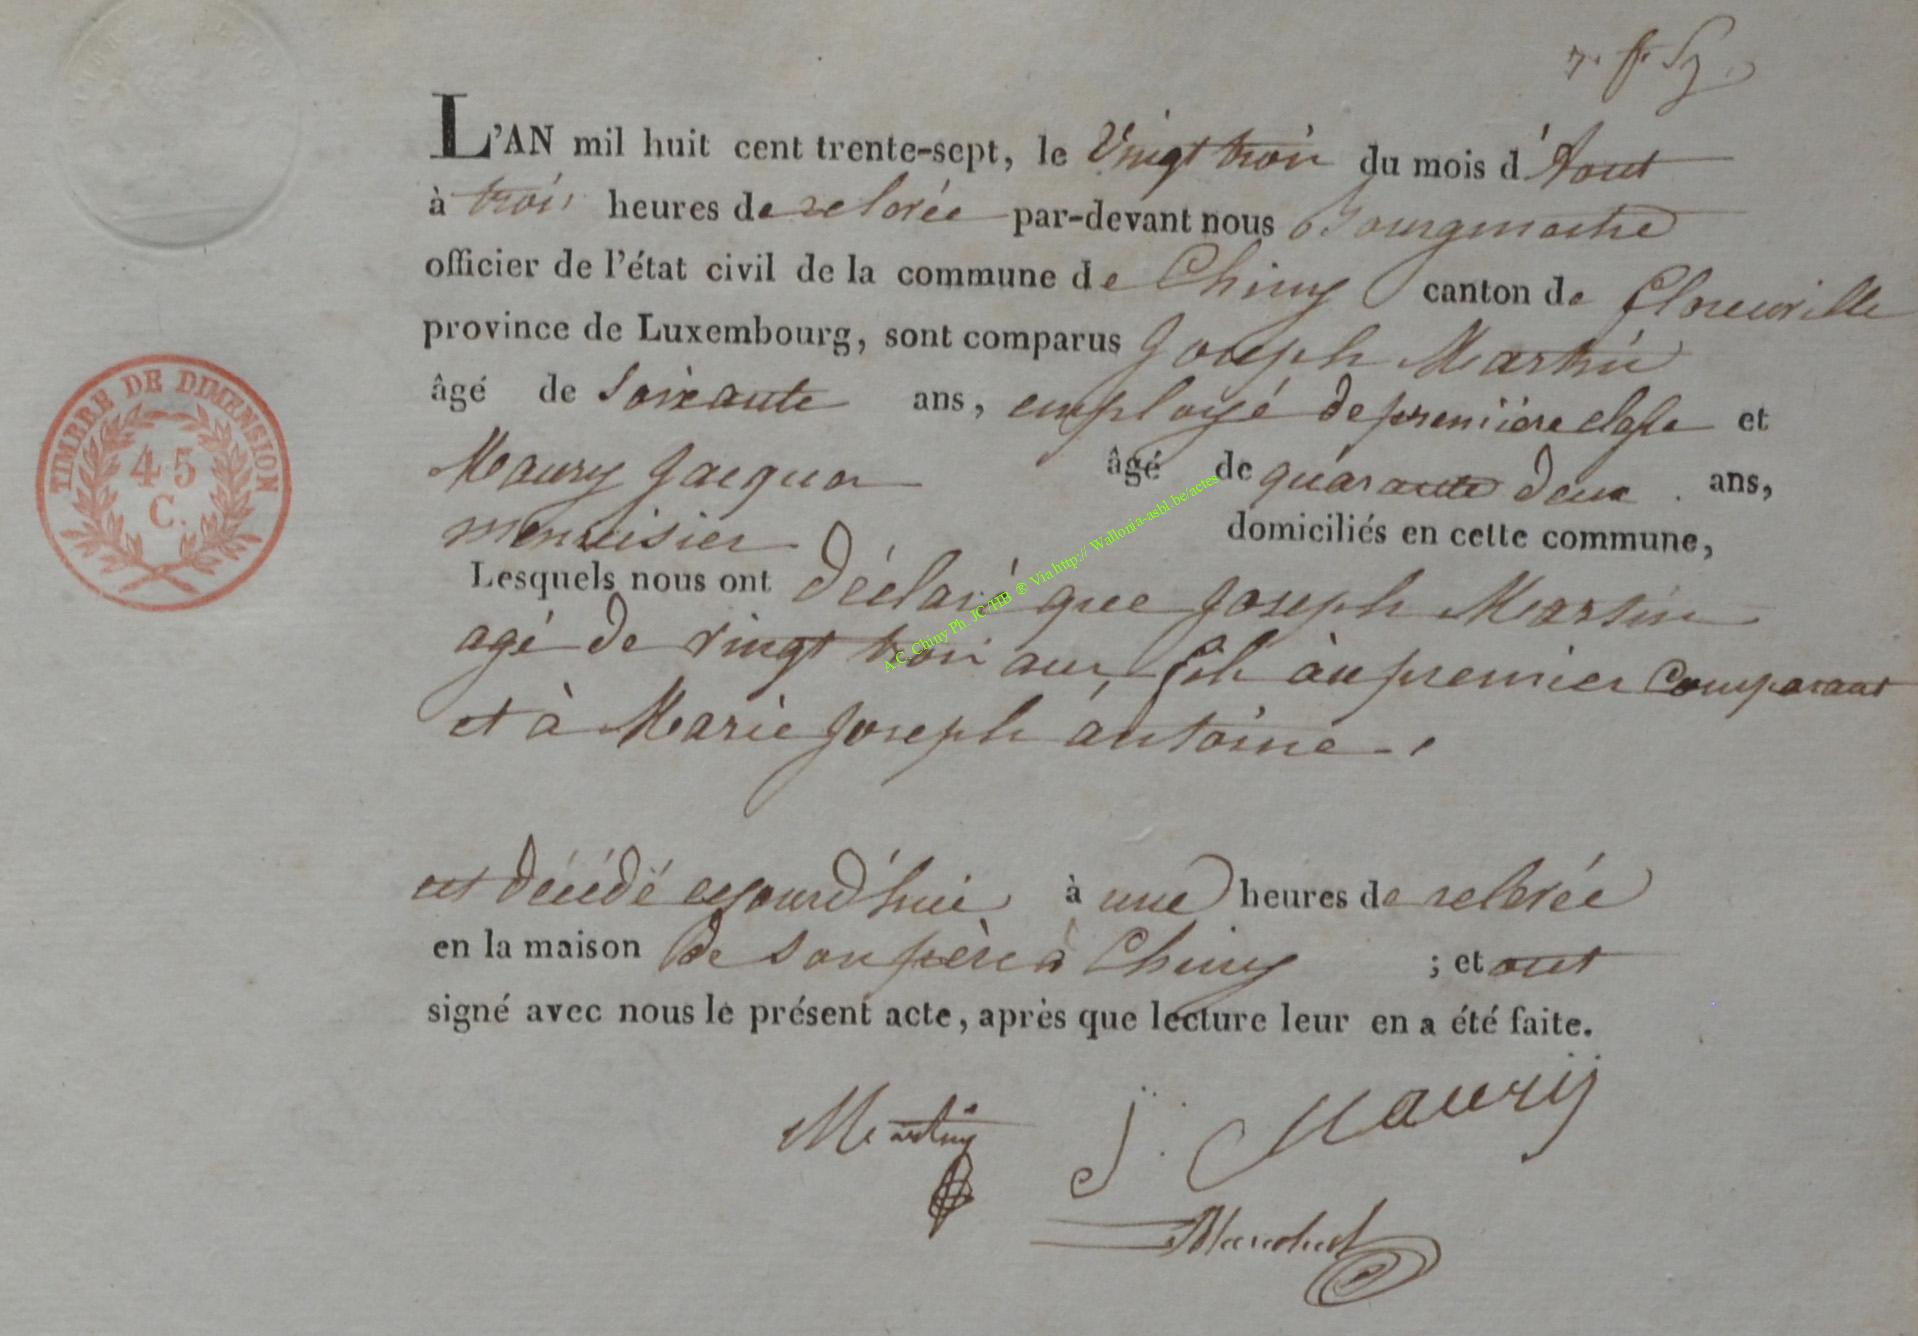 L'AN mil huit cent trente-sept, le Vingt trois du mois d'Aout
à trois heures de relevée par-devant nous Bourgmestre
officier de l'état civil de la commune de Chiny canton de florenville
province de Luxembourg, sont comparus Joseph Martin
âgé de Soixante ans, employé de première classe et
Maury Jacques âgé de quarante deux ans,
menuisier domiciliés en cette commune,
Lesquels nous ont déclaré que Joseph Martin
agé de vingt trois ans, fils au premier Comparant
et à Marie Joseph antoine
est décédé aujourd'hui à une heures de relevée
en la maison de son père à Chiny ; et ont
signé avec nous le présent acte, après que lecture leur en a été faite.
Martin J. Maurij
TIMBRE DE DIMENSION
45
C.
A.C. Chiny Ph. JC/HB ® Via http:// Wallonia-asbl.be/actes